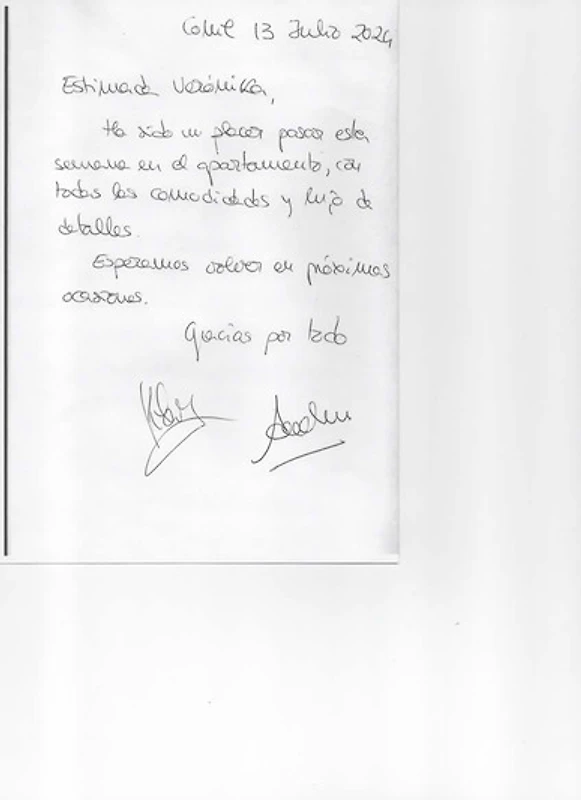 Conil 13 Julio 2024
Estimada Verónika,
Ha sido un placer pasar esta
semana en el apartamento, con
todas las comodidades y lujo de
detalles.
Esperamos volver en próximas
ocasiones.
Gracias por todo